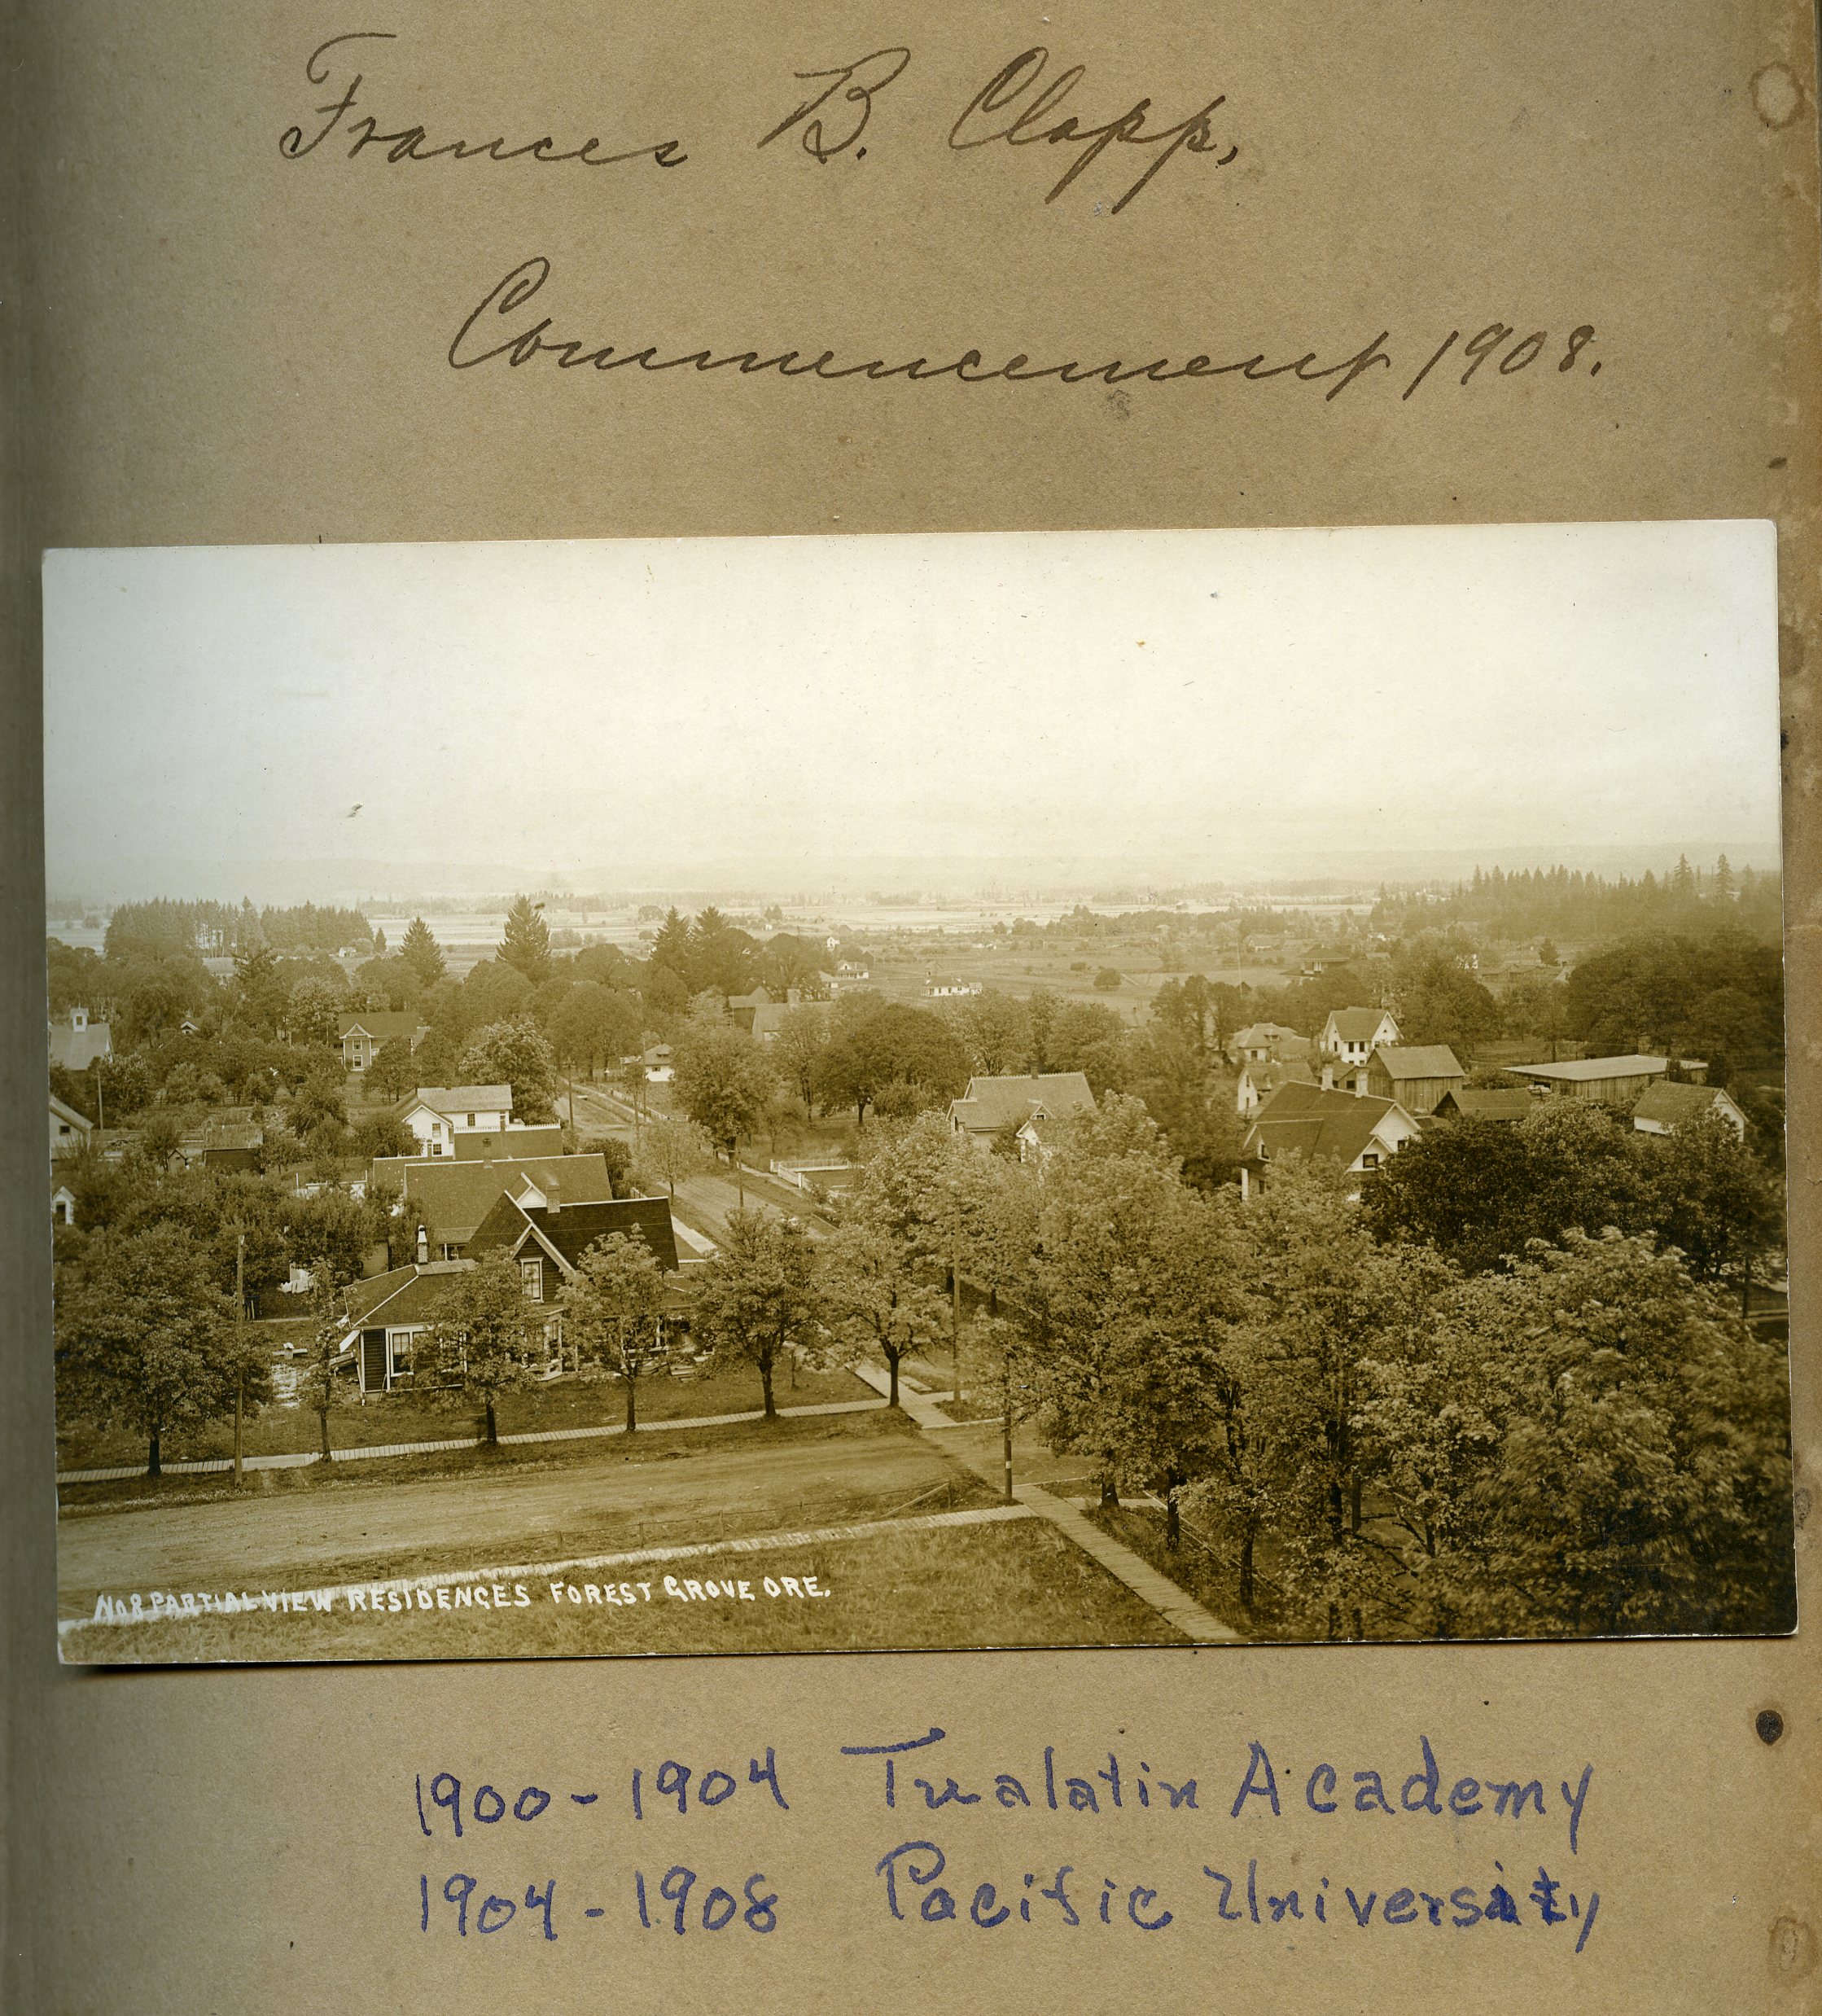 Frances B. Clapp,
Commencement 1908.
No 8 PARTIAL VIEW RESIDENCES FOREST GROVE ORE.
1900 - 1904 Tualatin Academy
1904 - 1908 Pacific University